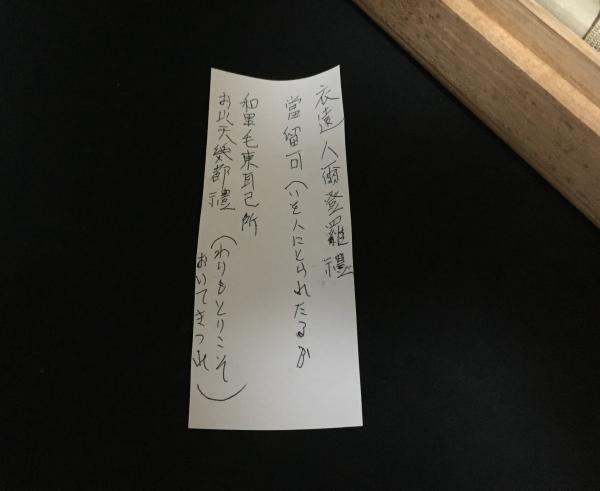 衣遠人爾登羅禮
當留可(いを人にとられたるか
和里毛東耳己所
お比天幾都禮
(わりもとりこそ
おいてきつれ)